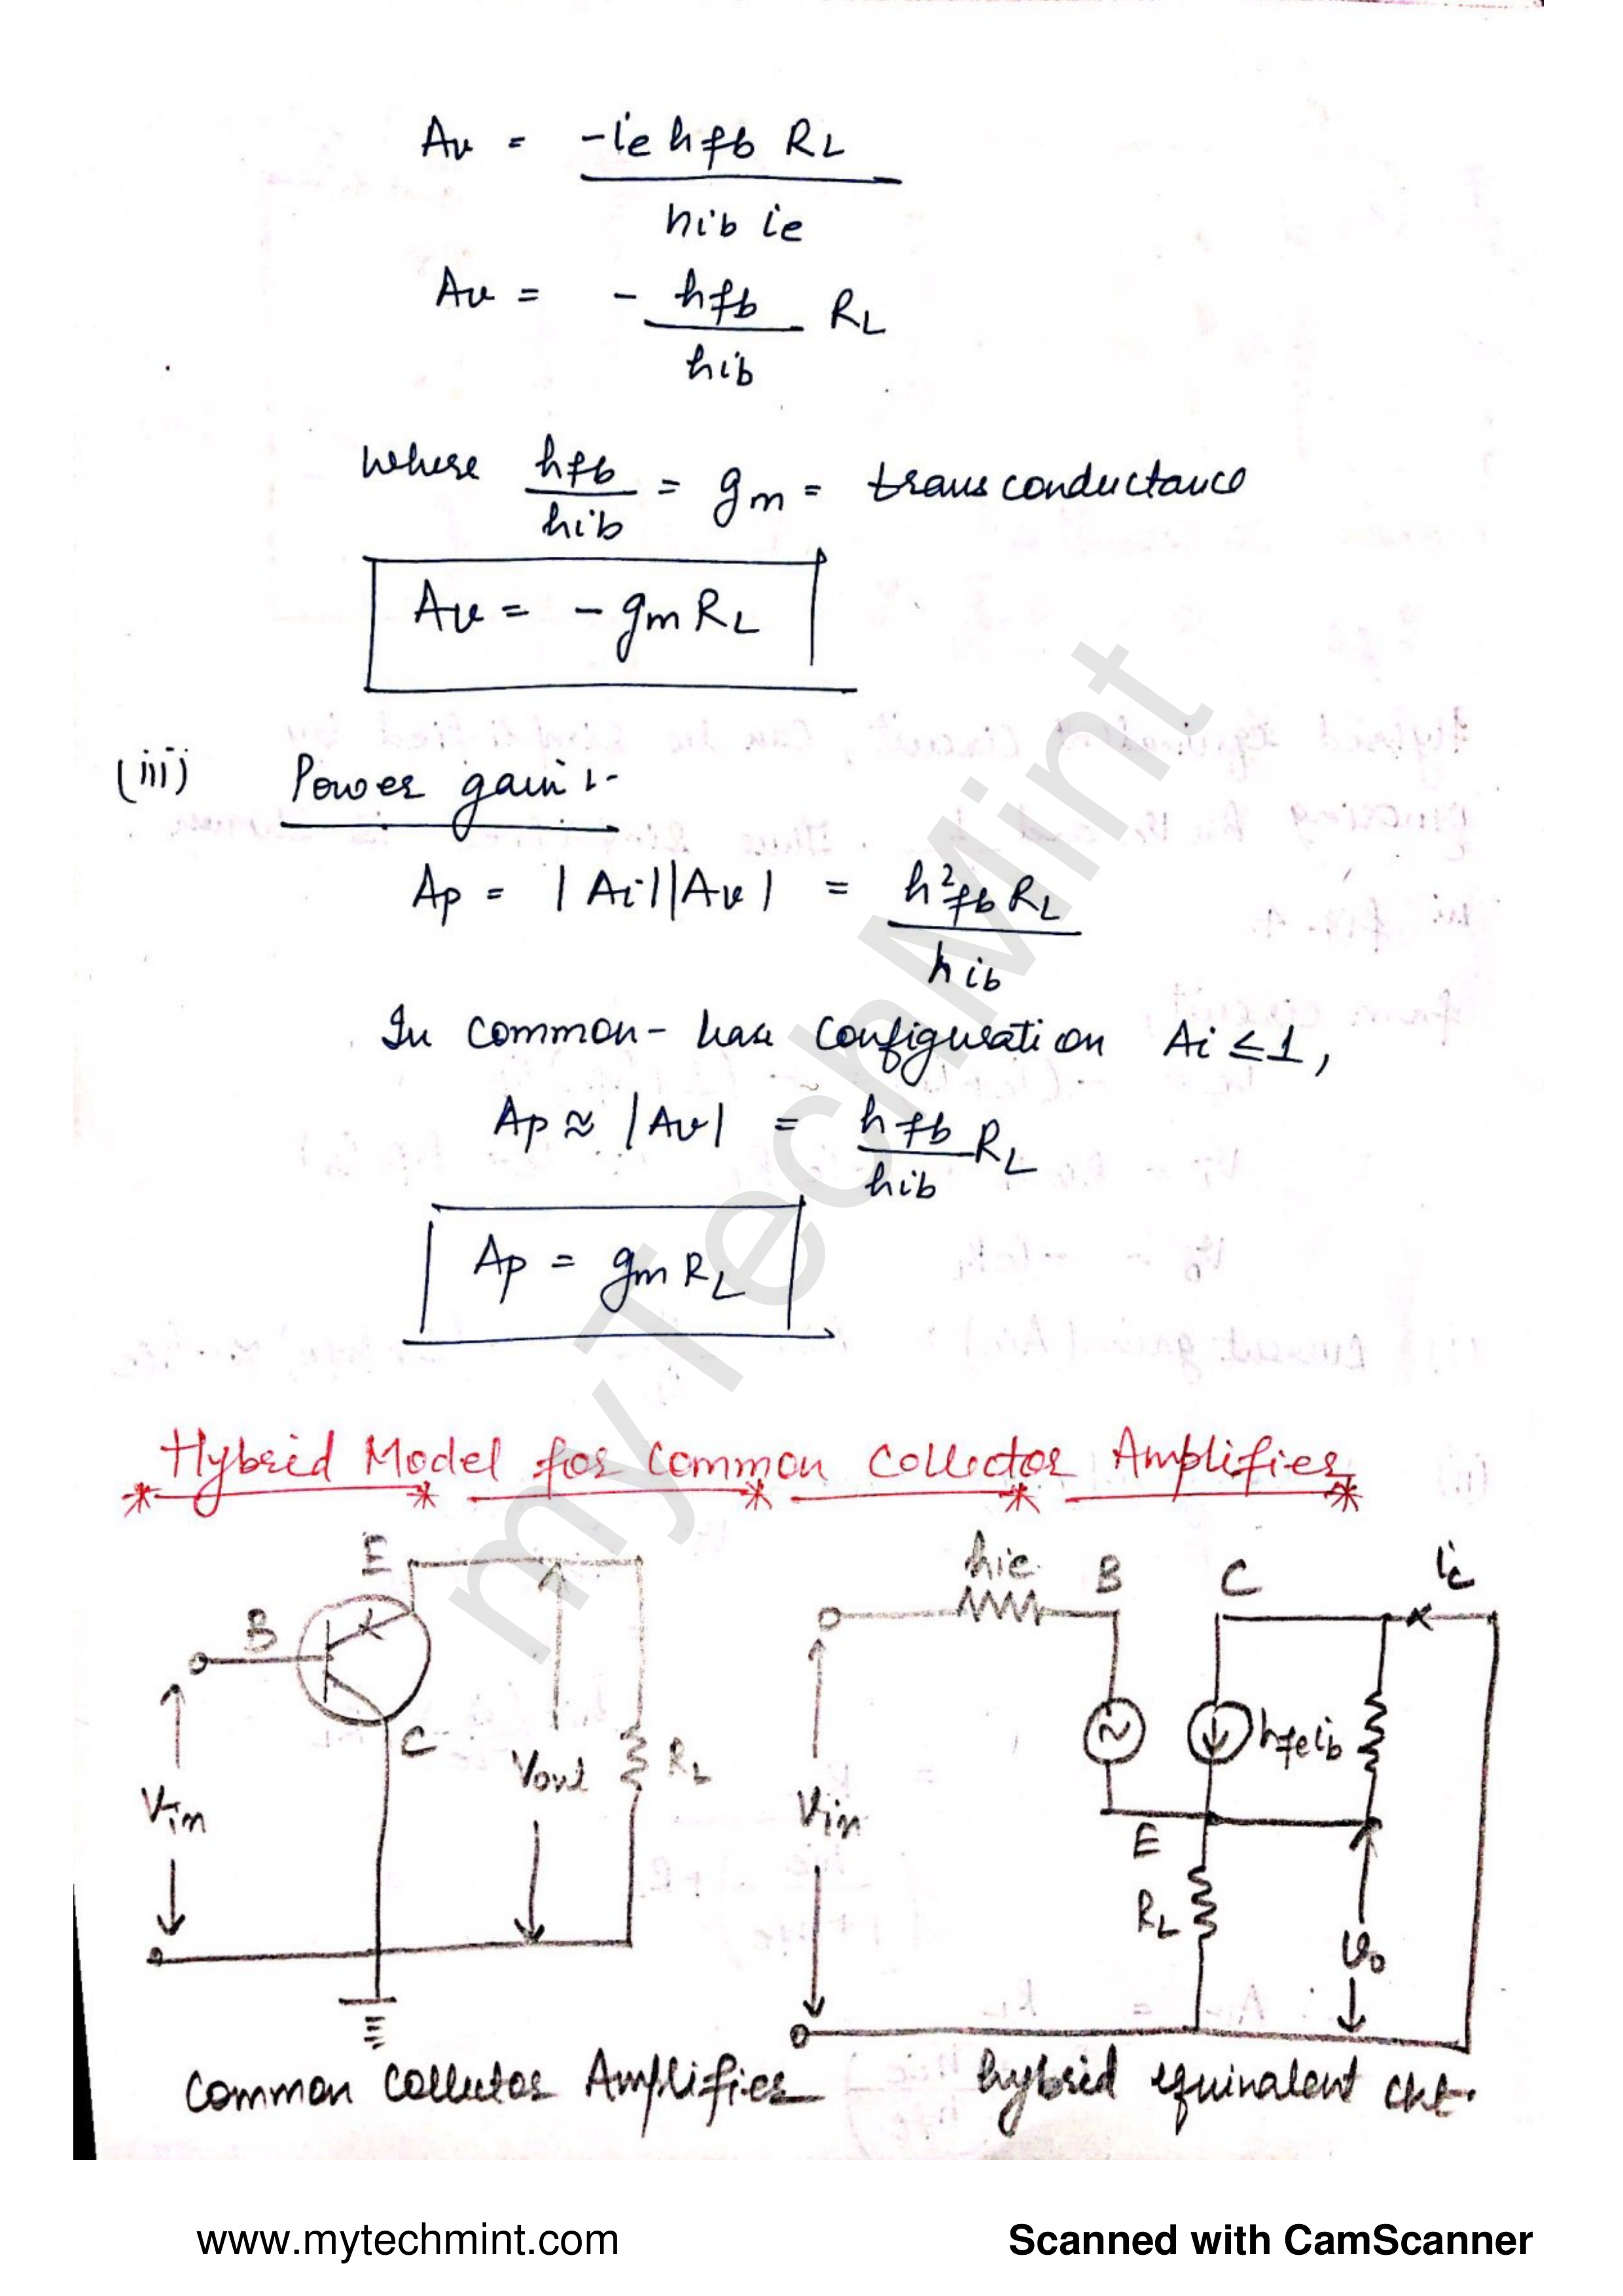 Av = -ie hfb RL
hib ie
Av = - hfb RL
hib
where hfb = gm = transconductance
hib
Av = - gm RL
(iii) Power gain :-
Ap = |Ai||Av| = h²fb RL
hib
In common-base configuration Ai ≤ 1,
Ap ≈ |Av| = hfb RL
hib
Ap = gm RL
Hybrid Model for Common Collector Amplifier
E
B
C
Vin
Vout
RL
hie
B
C
ic
Vin
hfe ib
E
RL
vo
Common Collector Amplifier
hybrid equivalent ckt.
myTechMint
www.mytechmint.com
Scanned with CamScanner